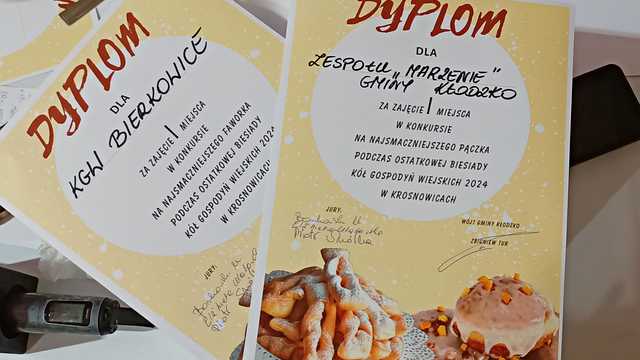 DYPLOM
DLA
KGW BIERKOWICE
ZA ZAJĘCIE I MIEJSCA
W KONKURSIE
NA NAJSMACZNIEJSZEGO FAWORKA
PODCZAS OSTATKOWEJ BIESIADY
KÓŁ GOSPODYŃ WIEJSKICH 2024
W KROSNOWICACH
JURY:
DYPLOM
DLA
ZESPOŁU „MARZENIE"
GMINY KŁODZKO
ZA ZAJĘCIE I MIEJSCA
W KONKURSIE
NA NAJSMACZNIEJSZEGO PĄCZKA
PODCZAS OSTATKOWEJ BIESIADY
KÓŁ GOSPODYŃ WIEJSKICH 2024
W KROSNOWICACH
JURY:
WÓJT GMINY KŁODZKO
ZBIGNIEW TUR